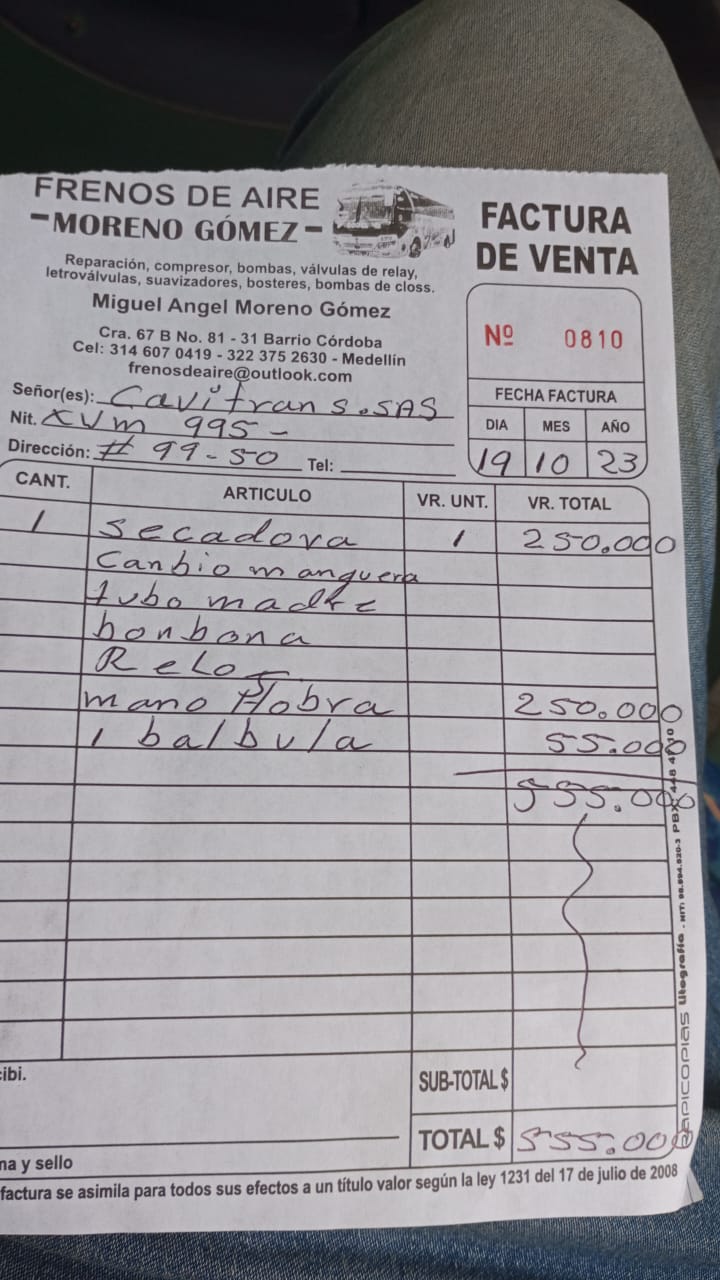 FRENOS DE AIRE
-MORENO GÓMEZ-
Reparación, compresor, bombas, válvulas de relay,
letroválvulas, suavizadores, bosteres, bombas de closs.
Miguel Angel Moreno Gómez
Cra. 67 B No. 81 - 31 Barrio Córdoba
Cel: 314 607 0419 - 322 375 2630 - Medellín
frenosdeaire@outlook.com
FACTURA
DE VENTA
Nº 0810
FECHA FACTURA
DIA MES AÑO
19 10 23
Señor(es): Cavitrans.SAS
Nit. XVM 995-
Dirección: # 99-50 Tel:
CANT. ARTICULO VR. UNT. VR. TOTAL
1 secadora 1 250.000
Canbio manguera
tubo madre
bonbona
Relo
mano Hobra 250.000
1 balbula 55.000
555.000
cibi.
SUB-TOTAL $
TOTAL $ 555.000
na y sello
factura se asimila para todos sus efectos a un título valor según la ley 1231 del 17 de julio de 2008
RAPICOPIAS Litografía - NIT: PBX: